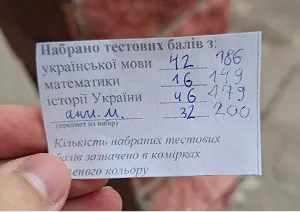 Набрано тестових балів з:
української мови 42 186
математики 16 149
історії України 46 179
англ. м. 32 200
(предмет на вибір)
Кількість набраних тестових
балів зазначено в комірках
кольору